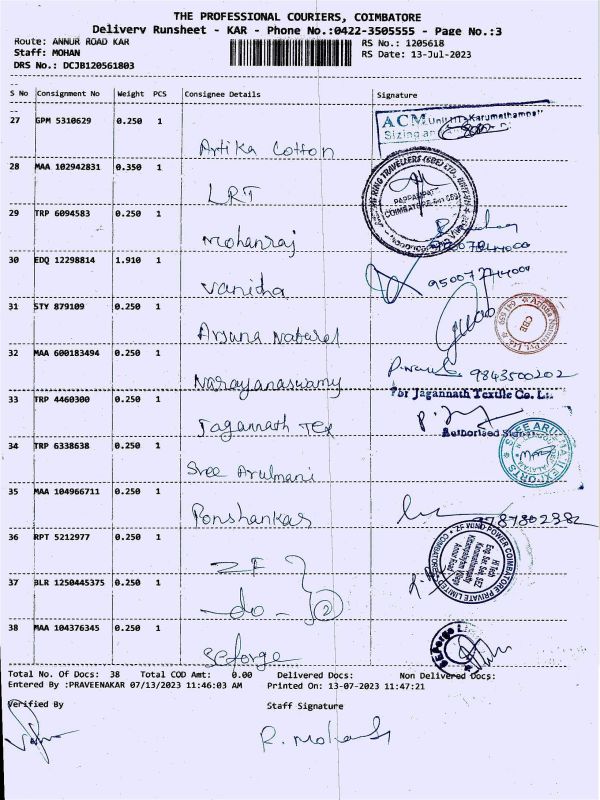 THE PROFESSIONAL COURIERS, COIMBATORE
Delivery Runsheet - KAR - Phone No.:0422-3505555 - Page No.:3
Route: ANNUR ROAD KAR
RS No.: 1205618
Staff: MOHAN
RS Date: 13-Jul-2023
DRS No.: DCJB120561803
S No Consignment No Weight PCS Consignee Details Signature
27 GPM 5310629 0.250 1
ACM Unit III "Karumathampa"
Sizing an
Artika Cotton
28 MAA 102942831 0.350 1
LRT
29 TRP 6094583 0.250 1
Mohanraj
30 EDQ 12298814 1.910 1
Vanitha
31 STY 879109 0.250 1
Arjuna Natural
32 MAA 600183494 0.250 1
Narayanaswamy
9843500202
For Jagannath Textile Co. L
33 TRP 4460300 0.250 1
Jagannath Tex
Authorised
34 TRP 6338638 0.250 1
Sree Arulmani
35 MAA 104966711 0.250 1
Ponshankar
36 RPT 5212977 0.250 1
ZF
37 BLR 1250445375 0.250 1
-do- 2
38 MAA 104376345 0.250 1
Seforge
Total No. Of Docs: 38 Total COD Amt: 0.00 Delivered Docs: Non Delivered Docs:
Entered By :PRAVEENAKAR 07/13/2023 11:46:03 AM Printed On: 13-07-2023 11:47:21
Verified By Staff Signature
R. Mohan